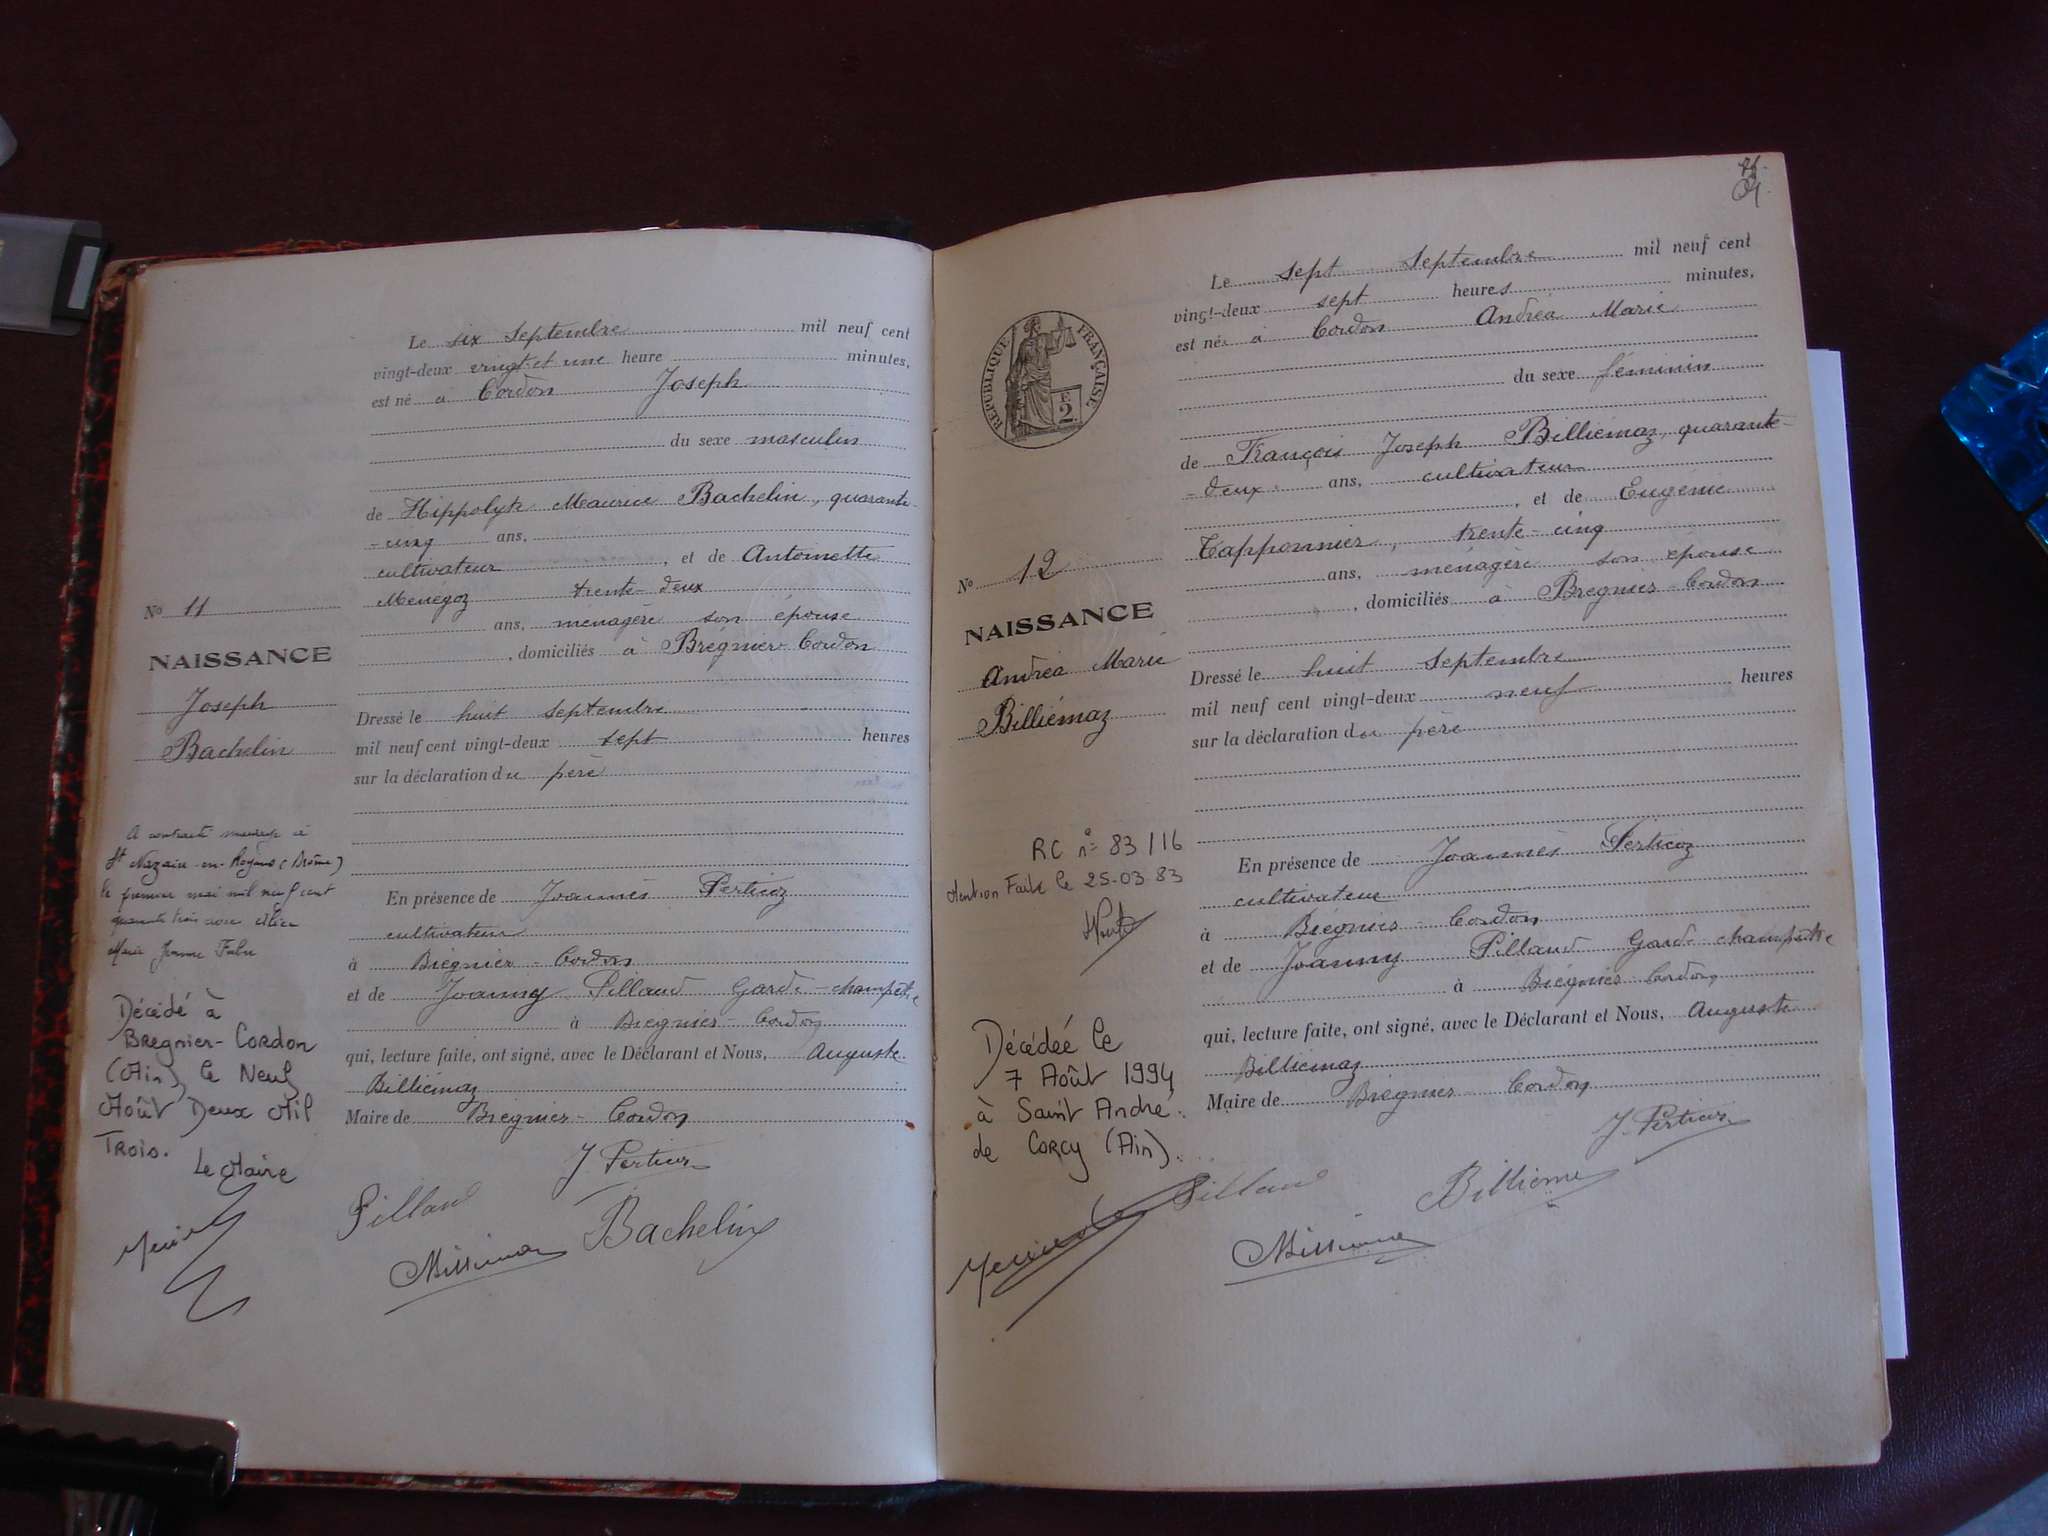 Le six Septembre mil neuf cent
vingt-deux vingt et une heure minutes,
est né à Cordon Joseph
du sexe masculin
de Hippolyte Maurice Bachelin, quarante-
-cinq ans,
cultivateur, et de Antoinette
Ménégoz trente-deux
ans, ménagère son épouse
, domiciliés à Brégnier-Cordon
Dressé le huit septembre
mil neuf cent vingt-deux sept heures
sur la déclaration du père
En présence de Joannès Perticoz
cultivateur
à Brégnier-Cordon
et de Joanny Pillaud Garde-champêtre
à Brégnier-Cordon
qui, lecture faite, ont signé, avec le Déclarant et Nous, Auguste
Billiémaz
Maire de Brégnier-Cordon
J. Perticoz
Pillaud
Bachelin
No 11
NAISSANCE
Joseph
Bachelin
A contracté mariage à
St Nazaire-en-Royans (Drôme)
le premier mai mil neuf cent
quarante trois avec Alice
Marie Jeanne Fabre
Décédé à
Bregnier-Cordon
(Ain), le Neuf
Août Deux Mil
Trois.
Le Maire
Le sept Septembre mil neuf cent
vingt-deux sept heures minutes,
est née à Cordon Andréa Marie
du sexe féminin
de François Joseph Billiémaz, quarante-
-deux ans, cultivateur
, et de Eugénie
Tapponnier, trente-cinq
ans, ménagère son épouse
, domiciliés à Brégnier-Cordon
Dressé le huit septembre
mil neuf cent vingt-deux neuf heures
sur la déclaration du père
En présence de Joannès Perticoz
cultivateur
à Brégnier-Cordon
et de Joanny Pillaud Garde-champêtre
à Brégnier-Cordon
qui, lecture faite, ont signé, avec le Déclarant et Nous, Auguste
Billiémaz
Maire de Brégnier-Cordon
J. Perticoz
Pillaud
RÉPUBLIQUE FRANÇAISE
E
2
No 12
NAISSANCE
Andréa Marie
Billiémaz
RC n° 83/16
Mention Faite le 25-03-83
Décédée le
7 Août 1994
à Saint André
de Corcy (Ain).